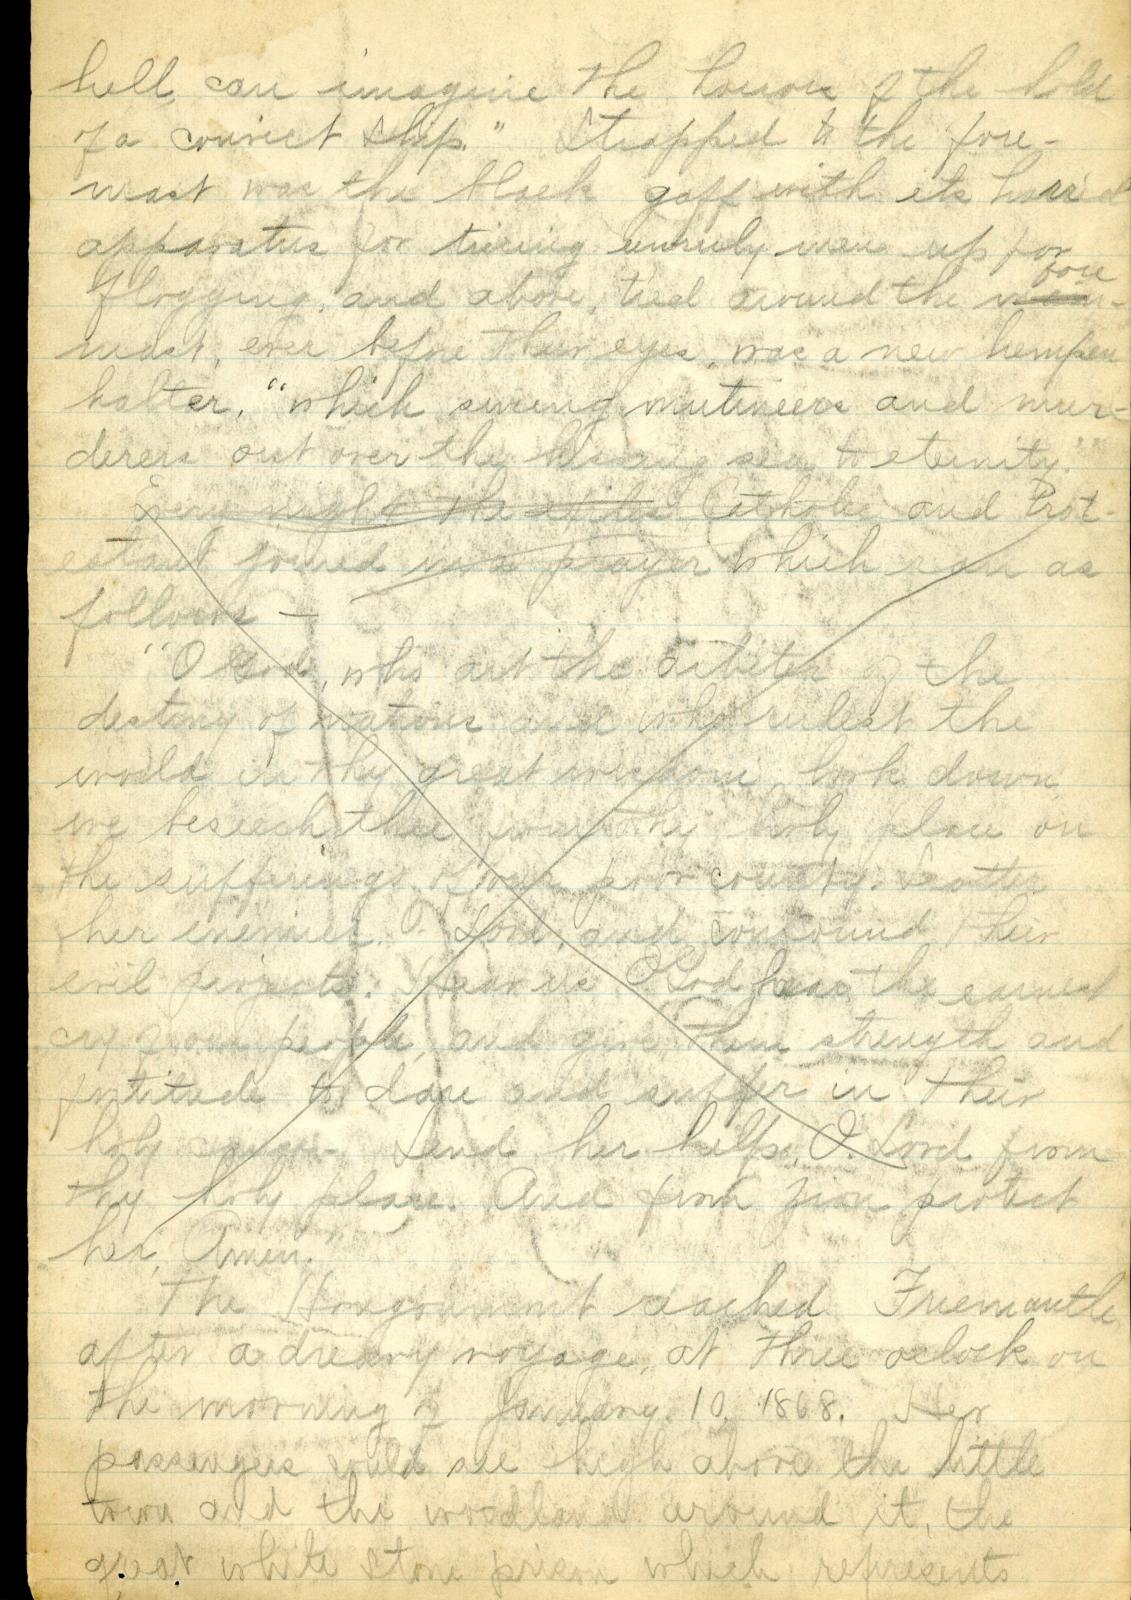 hell can imagine the horrors of the hold
of a convict ship." Strapped to the fore-
mast was the black gaff with its horrid
apparatus for tieing unruly men up for
flogging, and above, tied around the fore
mast, ever before their eyes, was a new hempen
halter, "which swung mutineers and mur-
derers out over the hissing sea to eternity."
Every night the exiles Catholic and Prot-
estant joined in a prayer which ran as
follows —
"O God, who art the arbiter of the
destiny of nations and who rulest the
world in thy great wisdom, look down
we beseech thee from thy holy place on
the sufferings of our poor country. Scatter
her enemies. O Lord, and confound their
evil projects. Hear us O God hear the earnest
cry of our people, and give them strength and
fortitude to dare and suffer in their
holy cause. Send her help, O Lord from
thy holy place. And from Zion protect
her, Amen."
The Hougoumont reached Fremantle
after a dreary voyage, at three oclock on
the morning of January 10, 1868. Her
passengers could see high above the little
town and the woodland around it, the
great white stone prison which represents